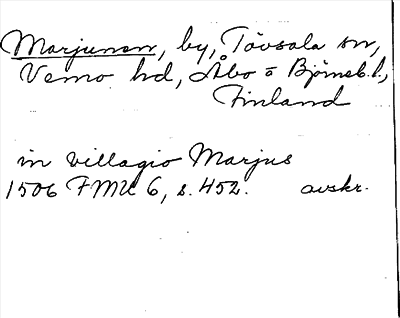 Marjunen, by, Tövsala sn,
Vemo hd, Åbo o Björneb. l,
Finland
in villagio Marjus
1506 FMU 6, s. 452. avskr.